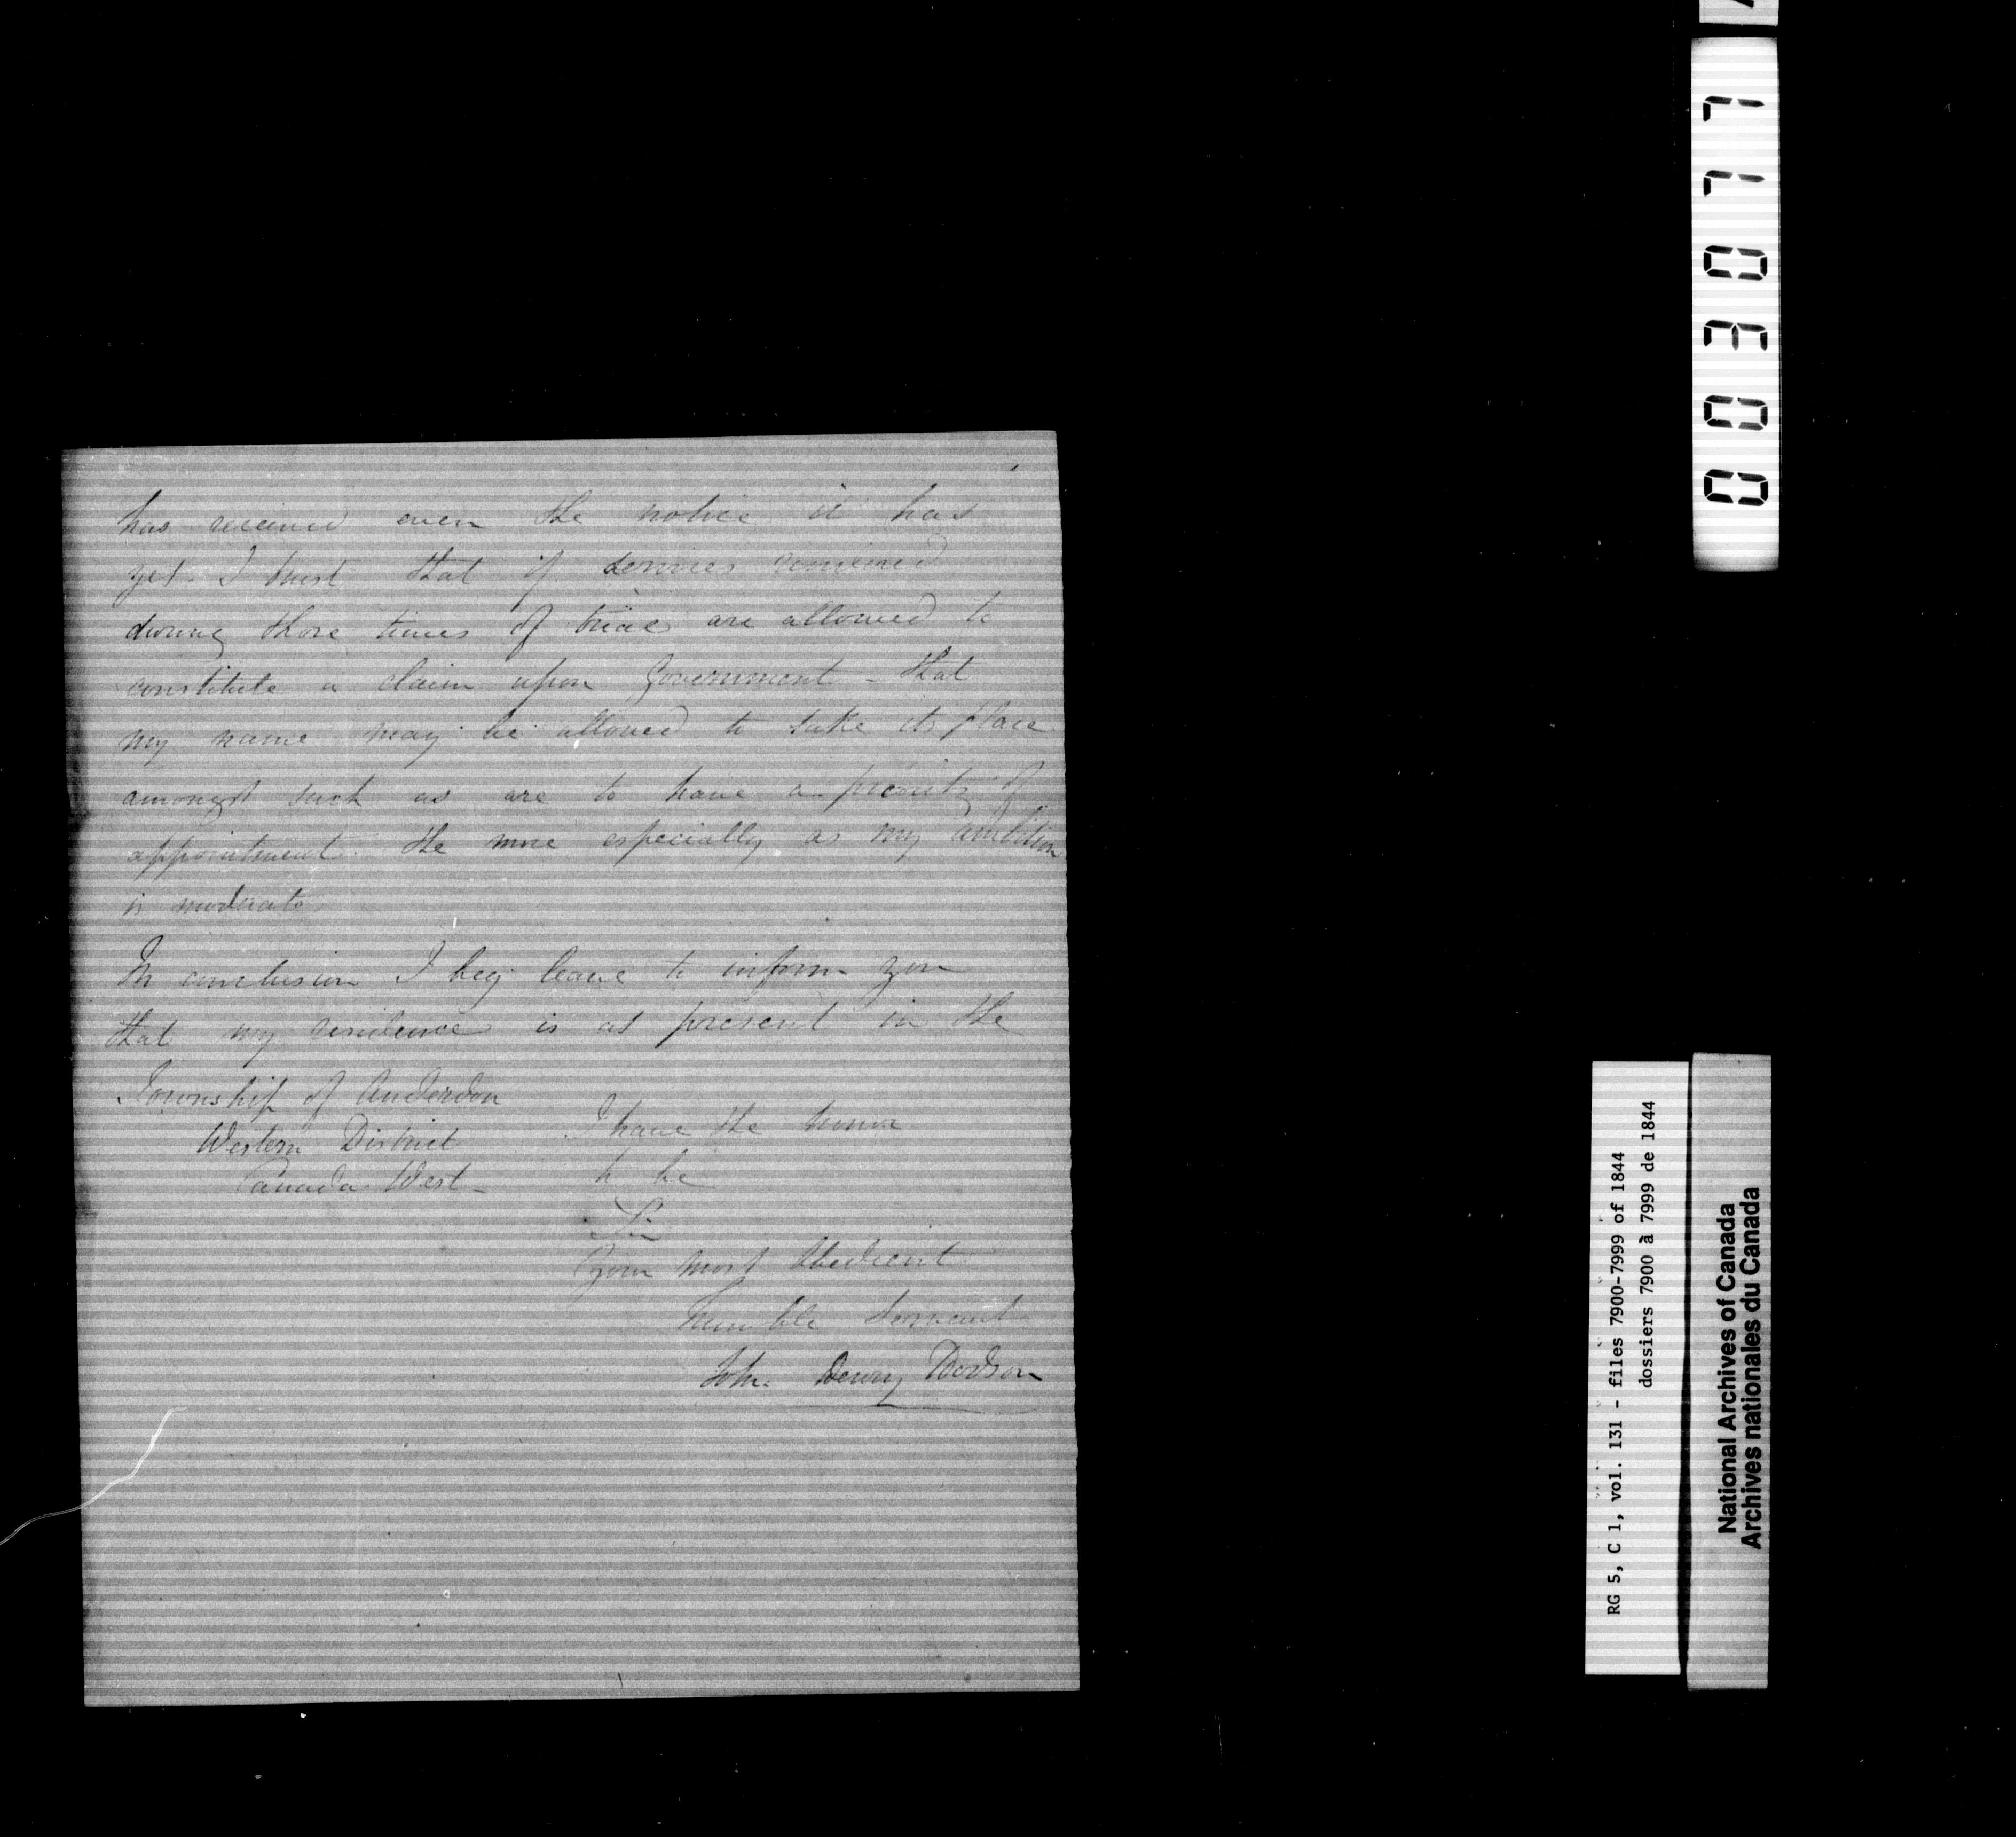 has received even the notice it has
yet I trust that if services rendered
during those times of trial are allowed to
constitute a claim upon Government - that
my name may be allowed to take its place
amongst such as are to have a priority of
appointment. the more especially as my ambition
is moderate
In conclusion I beg leave to inform you
that my residence is at present in the
Township of Anderdon
Western District
Canada West -
I have the honor
to be
Sir
Your most Obedient
humble Servant
John Dewry Dodson
003077
RG 5, C 1, vol. 131 - files 7900-7999 of 1844
dossiers 7900 à 7999 de 1844
National Archives of Canada
Archives nationales du Canada